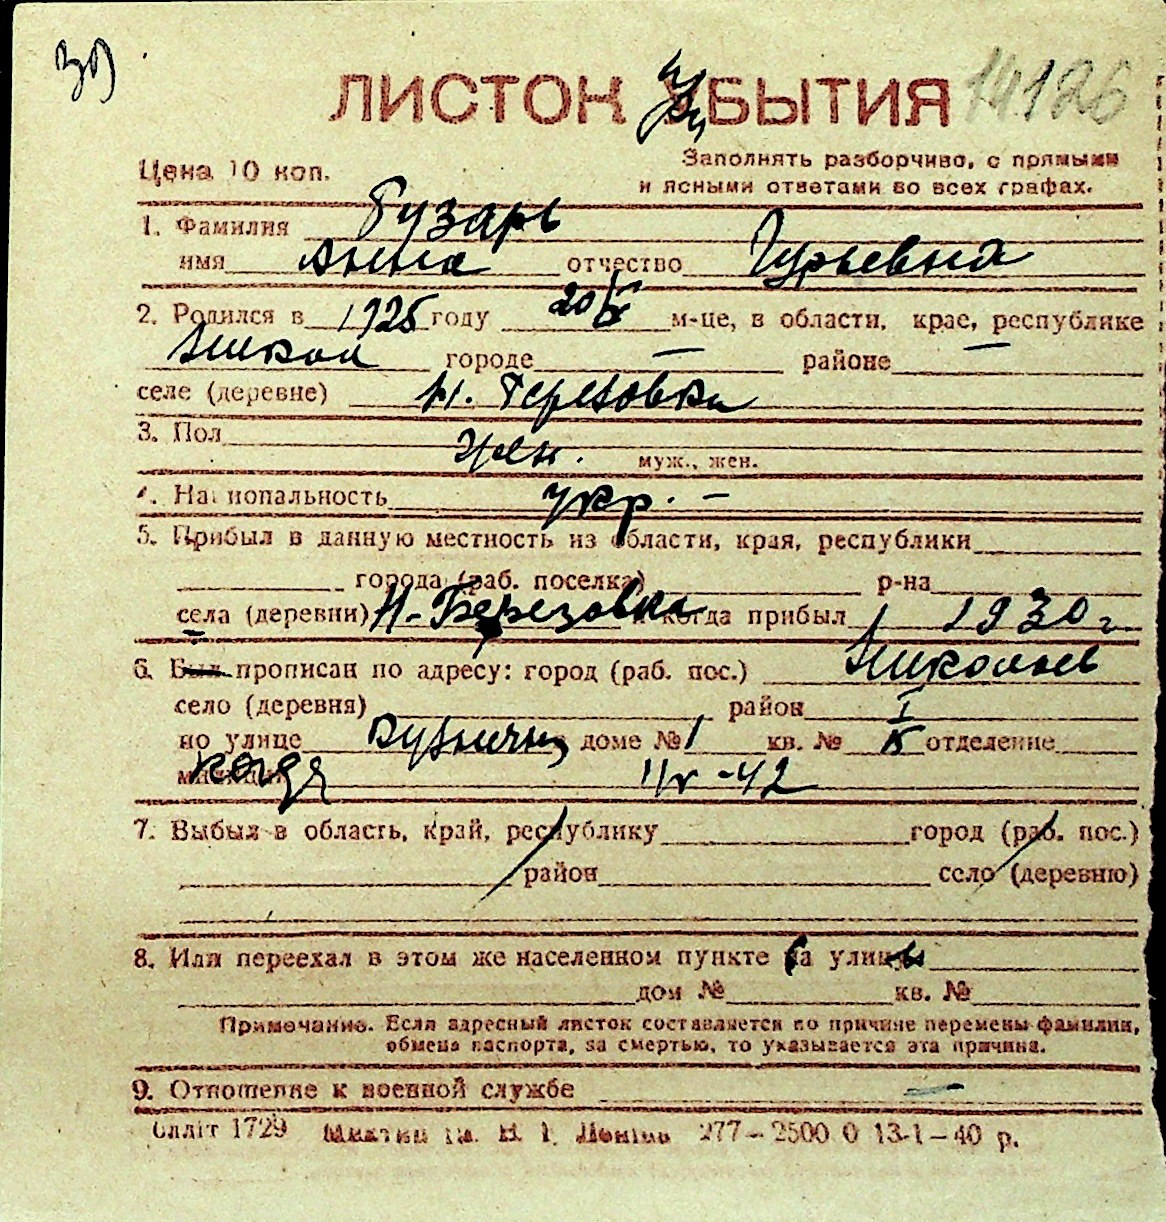 14126
ЛИСТОК УБЫТИЯ
Цена 10 коп.
Заполнять разборчиво, с прямыми
и ясными ответами во всех графах.
1. Фамилия Гузарь
имя Анна отчество Гурьевна
2. Родился в 1925 году 20/ м-це, в области, крае, республике
Никол городе — районе —
селе (деревне) Н. Березовка
3. Пол жен. муж., жен.
4. Национальность укр. –
5. Прибыл в данную местность из области, края, республики
города (раб. поселка) р-на
села (деревни) Н-Березовка и когда прибыл 1930 г
6. Был прописан по адресу: город (раб. пос.) Николаев
село (деревня) район I
по улице Кузнечн доме № 1 кв. № отделение
милиции когда 1/V-42
7. Выбыл в область, край, республику город (раб. пос.)
район село (деревню)
8. Или переехал в этом же населенном пункте на улицы
дом № кв. №
Примечание. Если адресный листок составляется по причине перемены фамилии,
обмена паспорта, за смертью, то указывается эта причина.
9. Отношение к военной службе —
Оллiт 1729 277–2500 0 13-1–40 р.